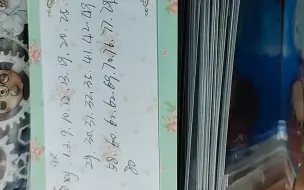 1. 3. 9. 10. 12. 13. 19. 20. 26.
29. 30. 31. 32. 35. 41. 42. 49
58. 60. 61. 62. 69. 70. 76. 77. 78
80